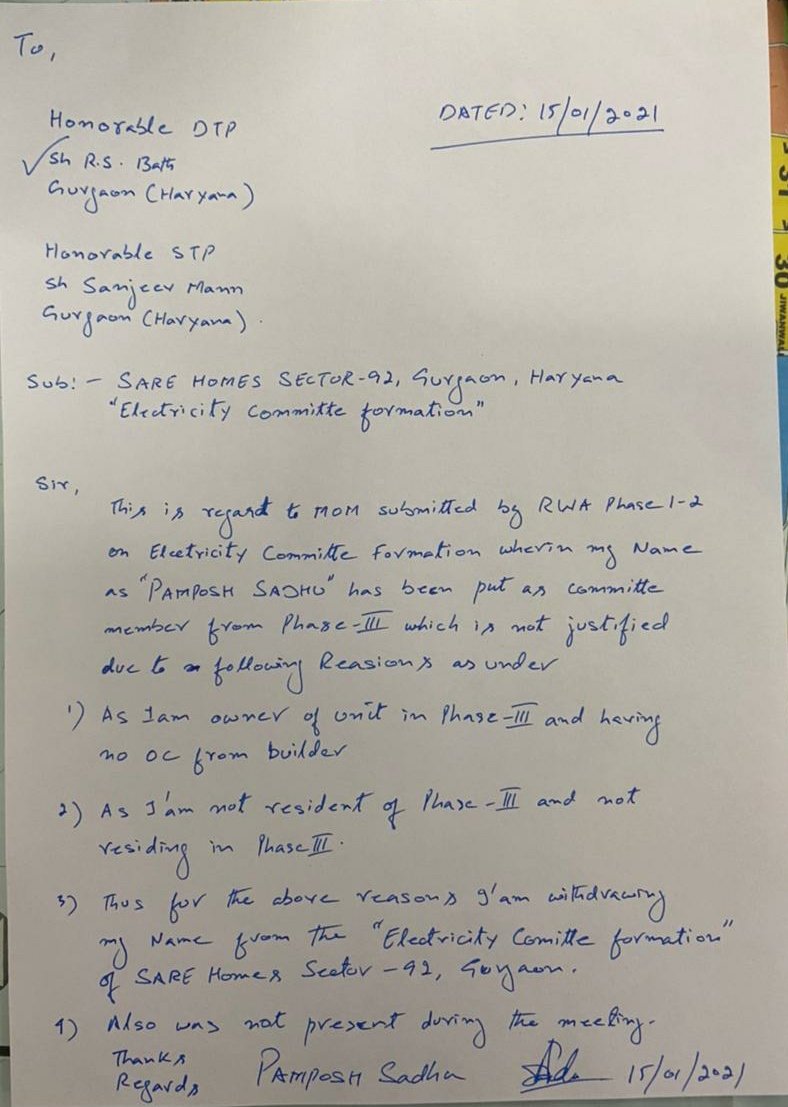 To,
DATED: 15/01/2021
Honorable DTP
Sh R.S. Bath
Gurgaon (Haryana)
Honorable STP
Sh Sanjeev Mann
Gurgaon (Haryana).
Sub:- SARE HOMES SECTOR-92, Gurgaon, Haryana
"Electricity Committe formation"
Sir,
This is regard to MOM submitted by RWA Phase 1-2
on Electricity Committe Formation wherin my Name
as "PAMPOSH SADHU" has been put as committe
member from Phase-III which is not justified
due to following Reasions as under
1) As Iam owner of unit in Phase-III and having
no OC from builder
2) As I'am not resident of Phase-III and not
residing in Phase III.
3) Thus for the above reasons I'am withdrawing
my Name from the "Electricity Comitte formation"
of SARE Homes Sector-92, Gurgaon.
4) Also was not present during the meeting.
Thanks
Regards
PAMPOSH Sadhu 15/01/2021
30
JIWANWALI